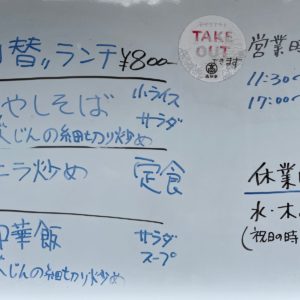 替〃ランチ ¥800-
やしそば 小ライス
サラダ
じんの細切り炒め
ニラ炒め 定食
華飯 サラダ
スープ
じんの細切り炒め
TAKE
OUT
できます
営業時
11:30〜
17:00〜
休業
水・木
(祝日の時